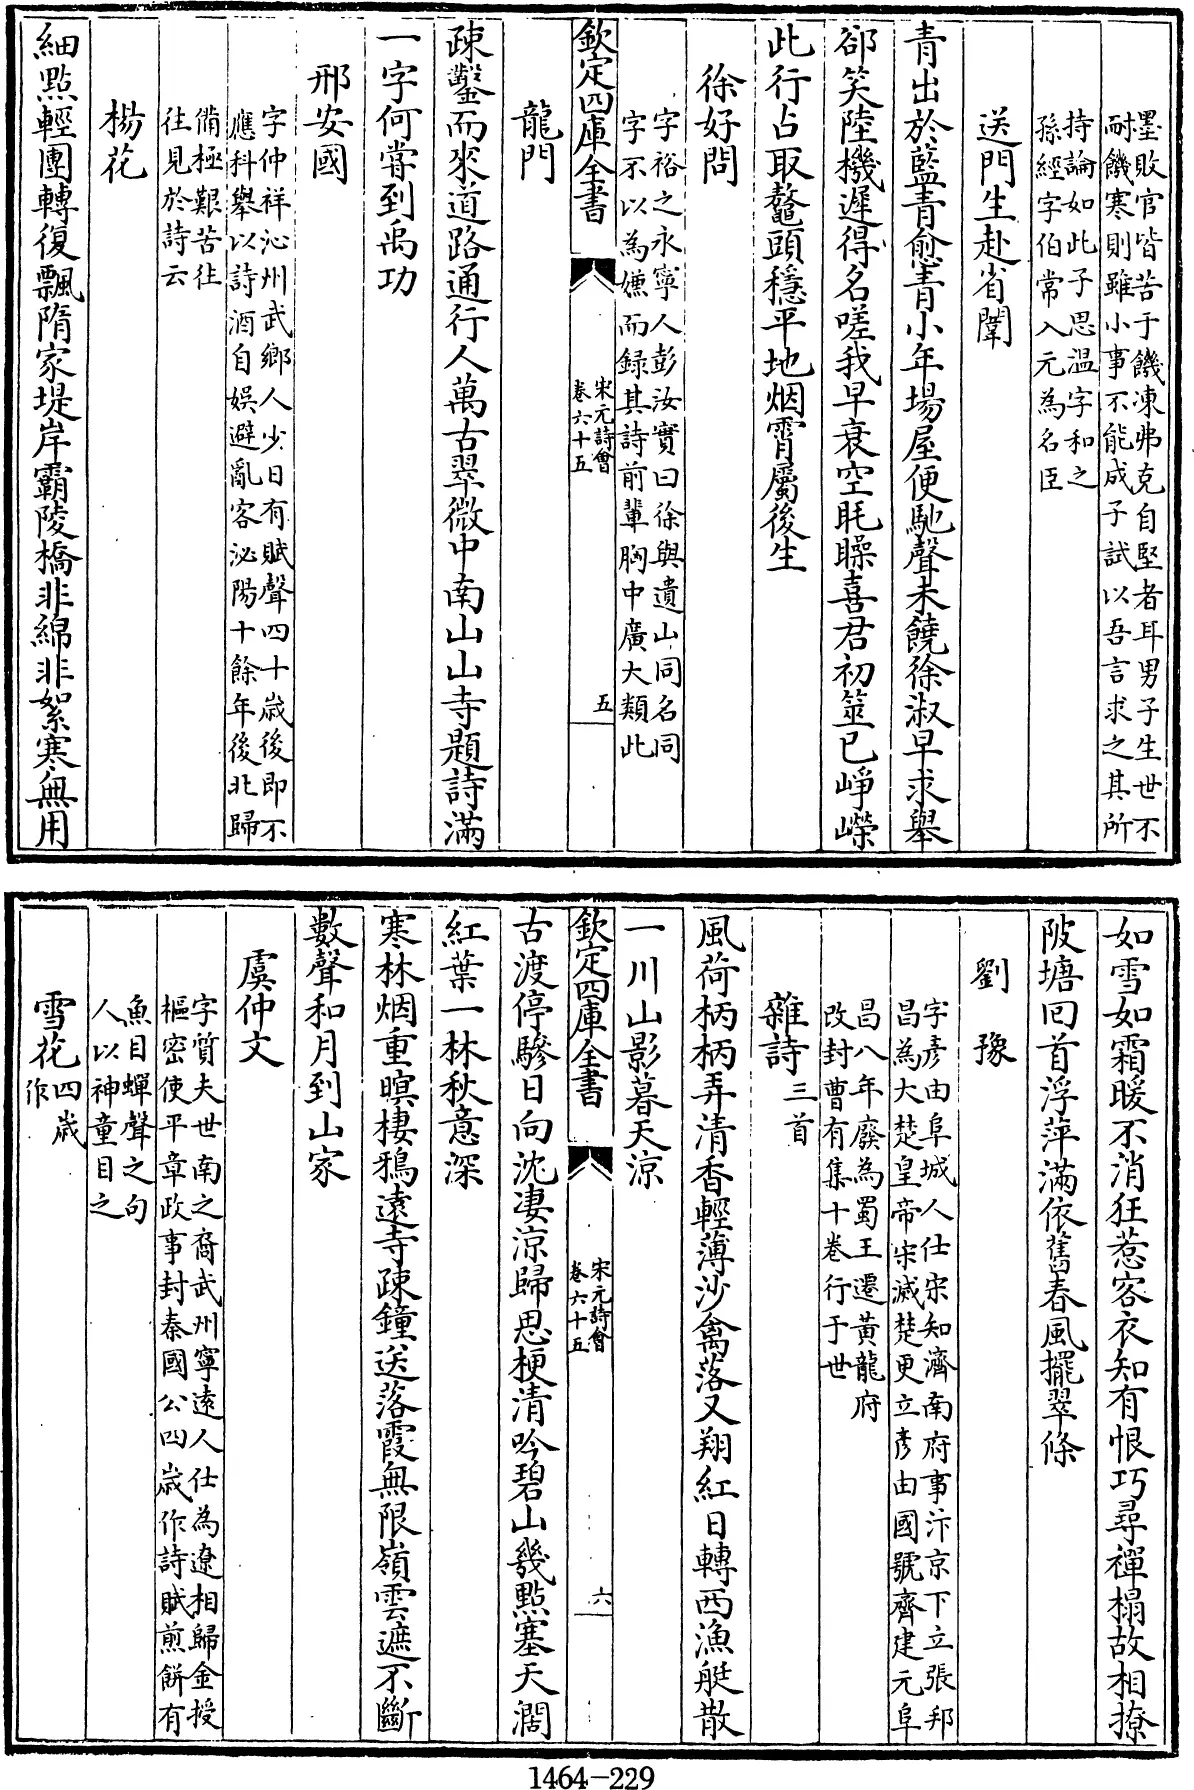 墨敗官皆苦于饑凍弗克自堅者耳男子生世不
耐饑寒則雖小事不能成子試以吾言求之其所
持論如此子思温字和之
孫經字伯常入元為名臣
送門生赴省闈
青出於藍青愈青小年場屋便馳聲未饒徐淑早求舉
郤笑陸機遲得名嗟我早衰空眊矂喜君初筮已崢嶸
此行占取鼇頭穩平地烟霄屬後生
徐好問
字裕之永寧人彭汝實曰徐與遺山同名同
字不以為嫌而録其詩前輩胸中廣大類此
欽定四庫全書
宋元詩會
卷六十五
五
龍門
疎鑿而來道路通行人萬古翠微中南山山寺題詩滿
一字何嘗到禹功
邢安國
字仲祥沁州武鄉人少日有賦聲四十歲後即不
應科舉以詩酒自娯避亂客泌陽十餘年後北歸
備極艱苦往
往見於詩云
楊花
細點輕團轉復飄隋家堤岸霸陵橋非綿非絮寒無用
如雪如霜暖不消狂惹客衣知有恨巧尋禪榻故相撩
陂塘囘首浮萍滿依舊春風擺翠條
劉豫
字彥由阜城人仕宋知濟南府事汴京下立張邦
昌為大楚皇帝宋滅楚更立彥由國號齊建元阜
昌八年廢為蜀王遷黄龍府
改封曹有集十卷行于世
雜詩三首
風荷柄柄弄清香輕薄沙禽落又翔紅日轉西漁艇散
一川山影暮天涼
欽定四庫全書
宋元詩會
卷六十五
六
古渡停驂日向沈凄涼歸思梗清吟碧山幾點塞天濶
紅葉一林秋意深
寒林烟重暝棲鴉遠寺疎鐘送落霞無限嶺雲遮不斷
數聲和月到山家
虞仲文
字質夫世南之裔武州寧遠人仕為遼相歸金授
樞密使平章政事封秦國公四歲作詩賦煎餅有
魚目蟬聲之句
人以神童目之
雪花四歲
作
1464-229